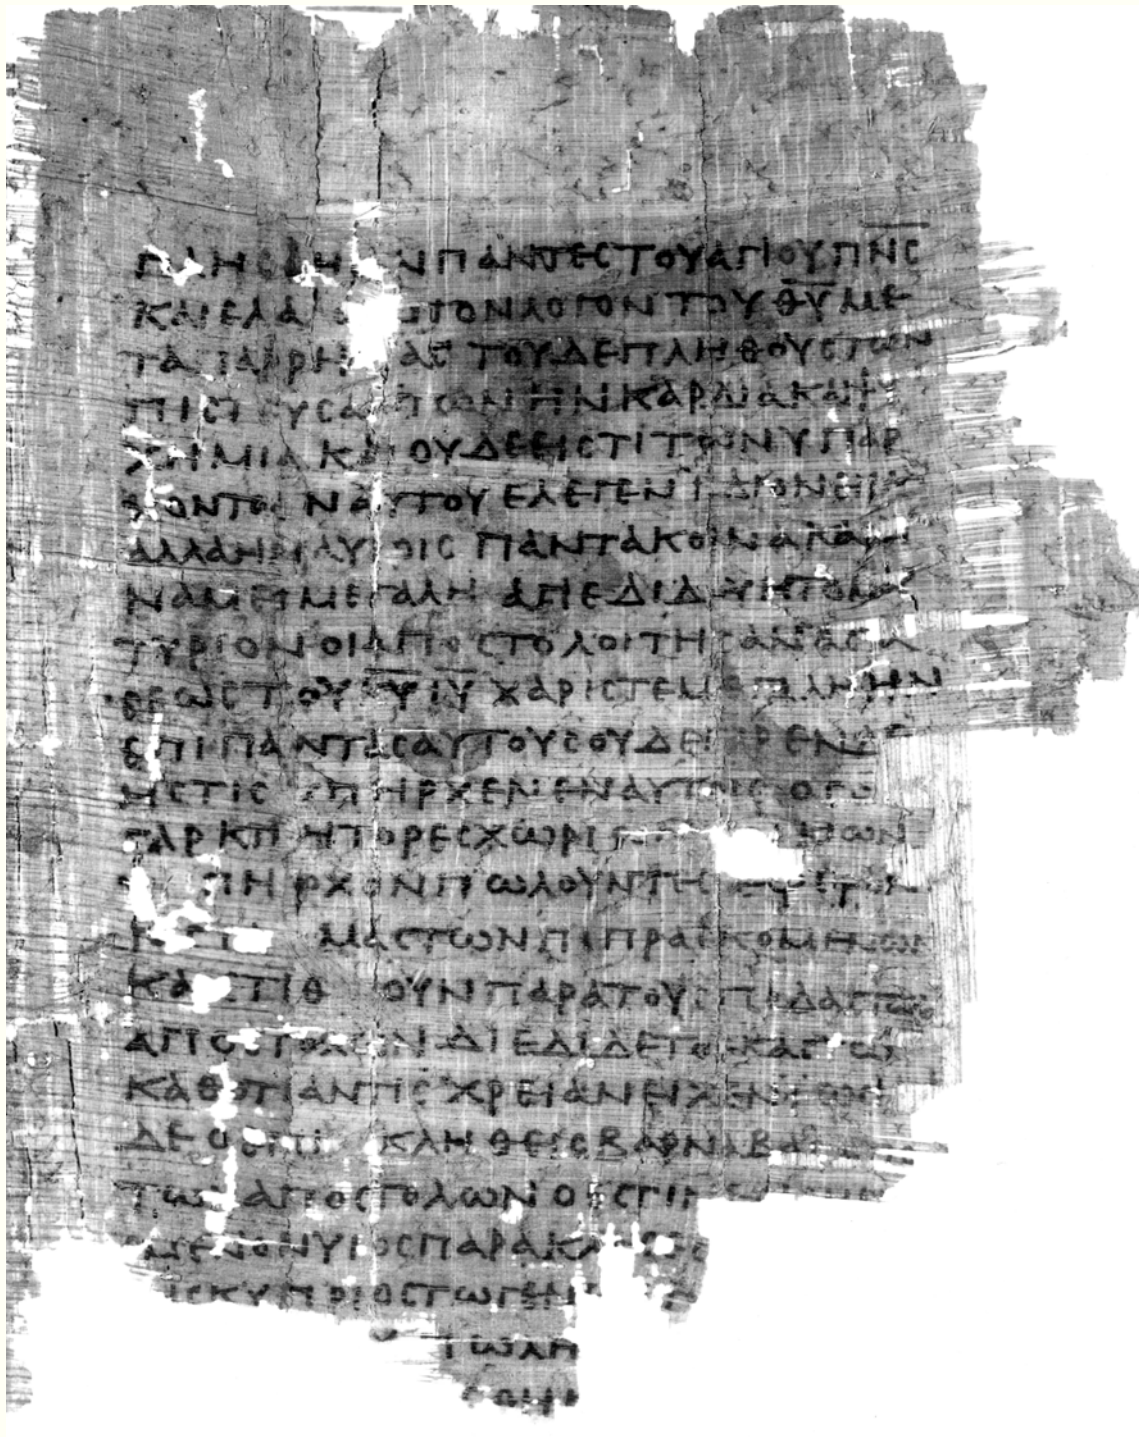 ΠΑΝΤΕϹΤΟΥΑΓΙΟΥΠ̅Ν̅Ϲ̅
ΚΑΙΕΛΑΛΟΥΝΤΟΝΛΟΓΟΝΤΟΥΘ̅Υ̅ΜΕ
ΤΑΠΑΡΡΗϹΙΑϹΤΟΥΔΕΠΛΗΘΟΥϹΤΩΝ
ΠΙϹΤΕΥϹΑΝΤΩΝΗΝΚΑΡΔΙΑΚΑΙΨΥ
ΧΗΜΙΑΚΑΙΟΥΔΕΕΙϹΤΙΤΩΝΥΠΑΡ
ΧΟΝΤΩΝΑΥΤΟΥΕΛΕΓΕΝΙΔΙΟΝΕΙΝΑΙ
ΑΛΛΑΗΝΑΥΤΟΙϹΠΑΝΤΑΚΟΙΝΑΚΑΙΔΥ
ΝΑΜΕΙΜΕΓΑΛΗΑΠΕΔΙΔΟΥΝΤΟΜΑΡ
ΤΥΡΙΟΝΟΙΑΠΟϹΤΟΛΟΙΤΗϹΑΝΑϹΤΑ
ϹΕΩϹΤΟΥΚ̅Υ̅Ι̅Υ̅ΧΑΡΙϹΤΕΜΕΓΑΛΗΗΝ
ΕΠΙΠΑΝΤΑϹΑΥΤΟΥϹΟΥΔΕΓΑΡΕΝΔΕ
ΗϹΤΙϹΥΠΗΡΧΕΝΕΝΑΥΤΟΙϹΟϹΟΙ
ΓΑΡΚΤΗΤΟΡΕϹΧΩΡΙ
ΥΠΗΡΧΟΝΠΩΛΟΥΝΤΕϹ
ΜΑϹΤΩΝΠΙΠΡΑϹΚΟΜΕΝΩΝ
ΚΑΙΕΤΙΘΟΥΝΠΑΡΑΤΟΥϹΠΟΔΑϹΤΩΝ
ΑΠΟϹΤΟΛΩΝΔΙΕΔΙΔΕΤΟ
ΚΑΘΟΤΙΑΝΤΙϹΧΡΕΙΑΝΕΙΧΕΝ
ΔΕΟΕΠΙΚΛΗΘΕΙϹΒΑΡΝΑΒΑ
ΤΩΝΑΠΟϹΤΟΛΩΝΟΕϹΤΙΝ
ΜΕΝΟΝΥΙΟϹΠΑΡΑΚΛΗϹΕ
ΚΥΠΡΙΟϹΤΩΓΕΝ